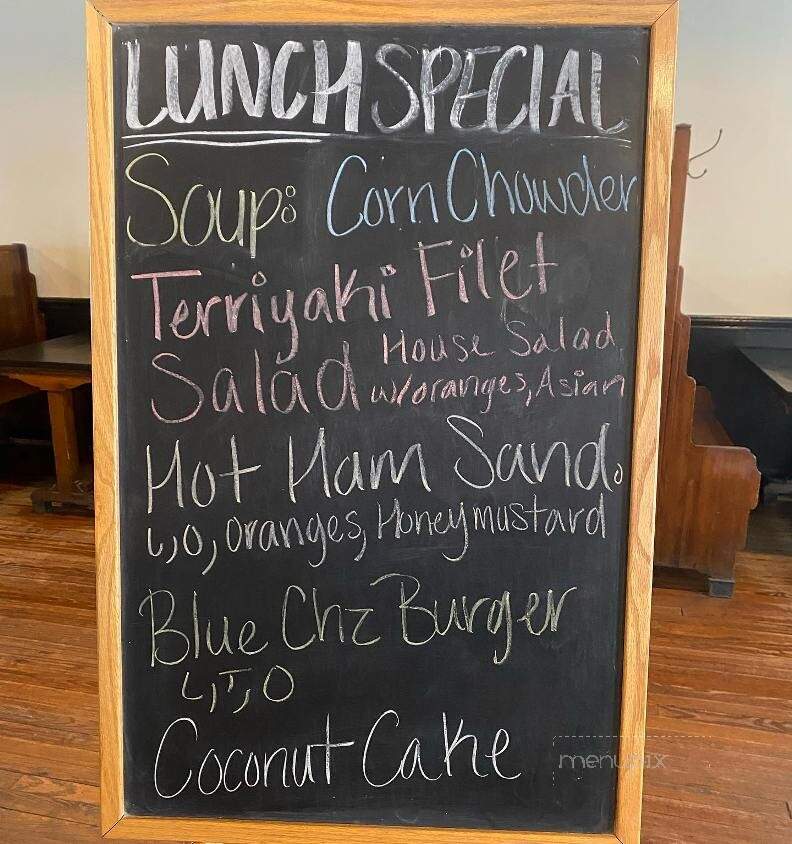 LUNCH SPECIAL
Soup: Corn Chowder
Terriyaki Filet
Salad House Salad
w/oranges, Asian
Hot Ham Sand.
L, O, oranges, Honeymustard
Blue Chz Burger
L, T, O
Coconut Cake
menupix